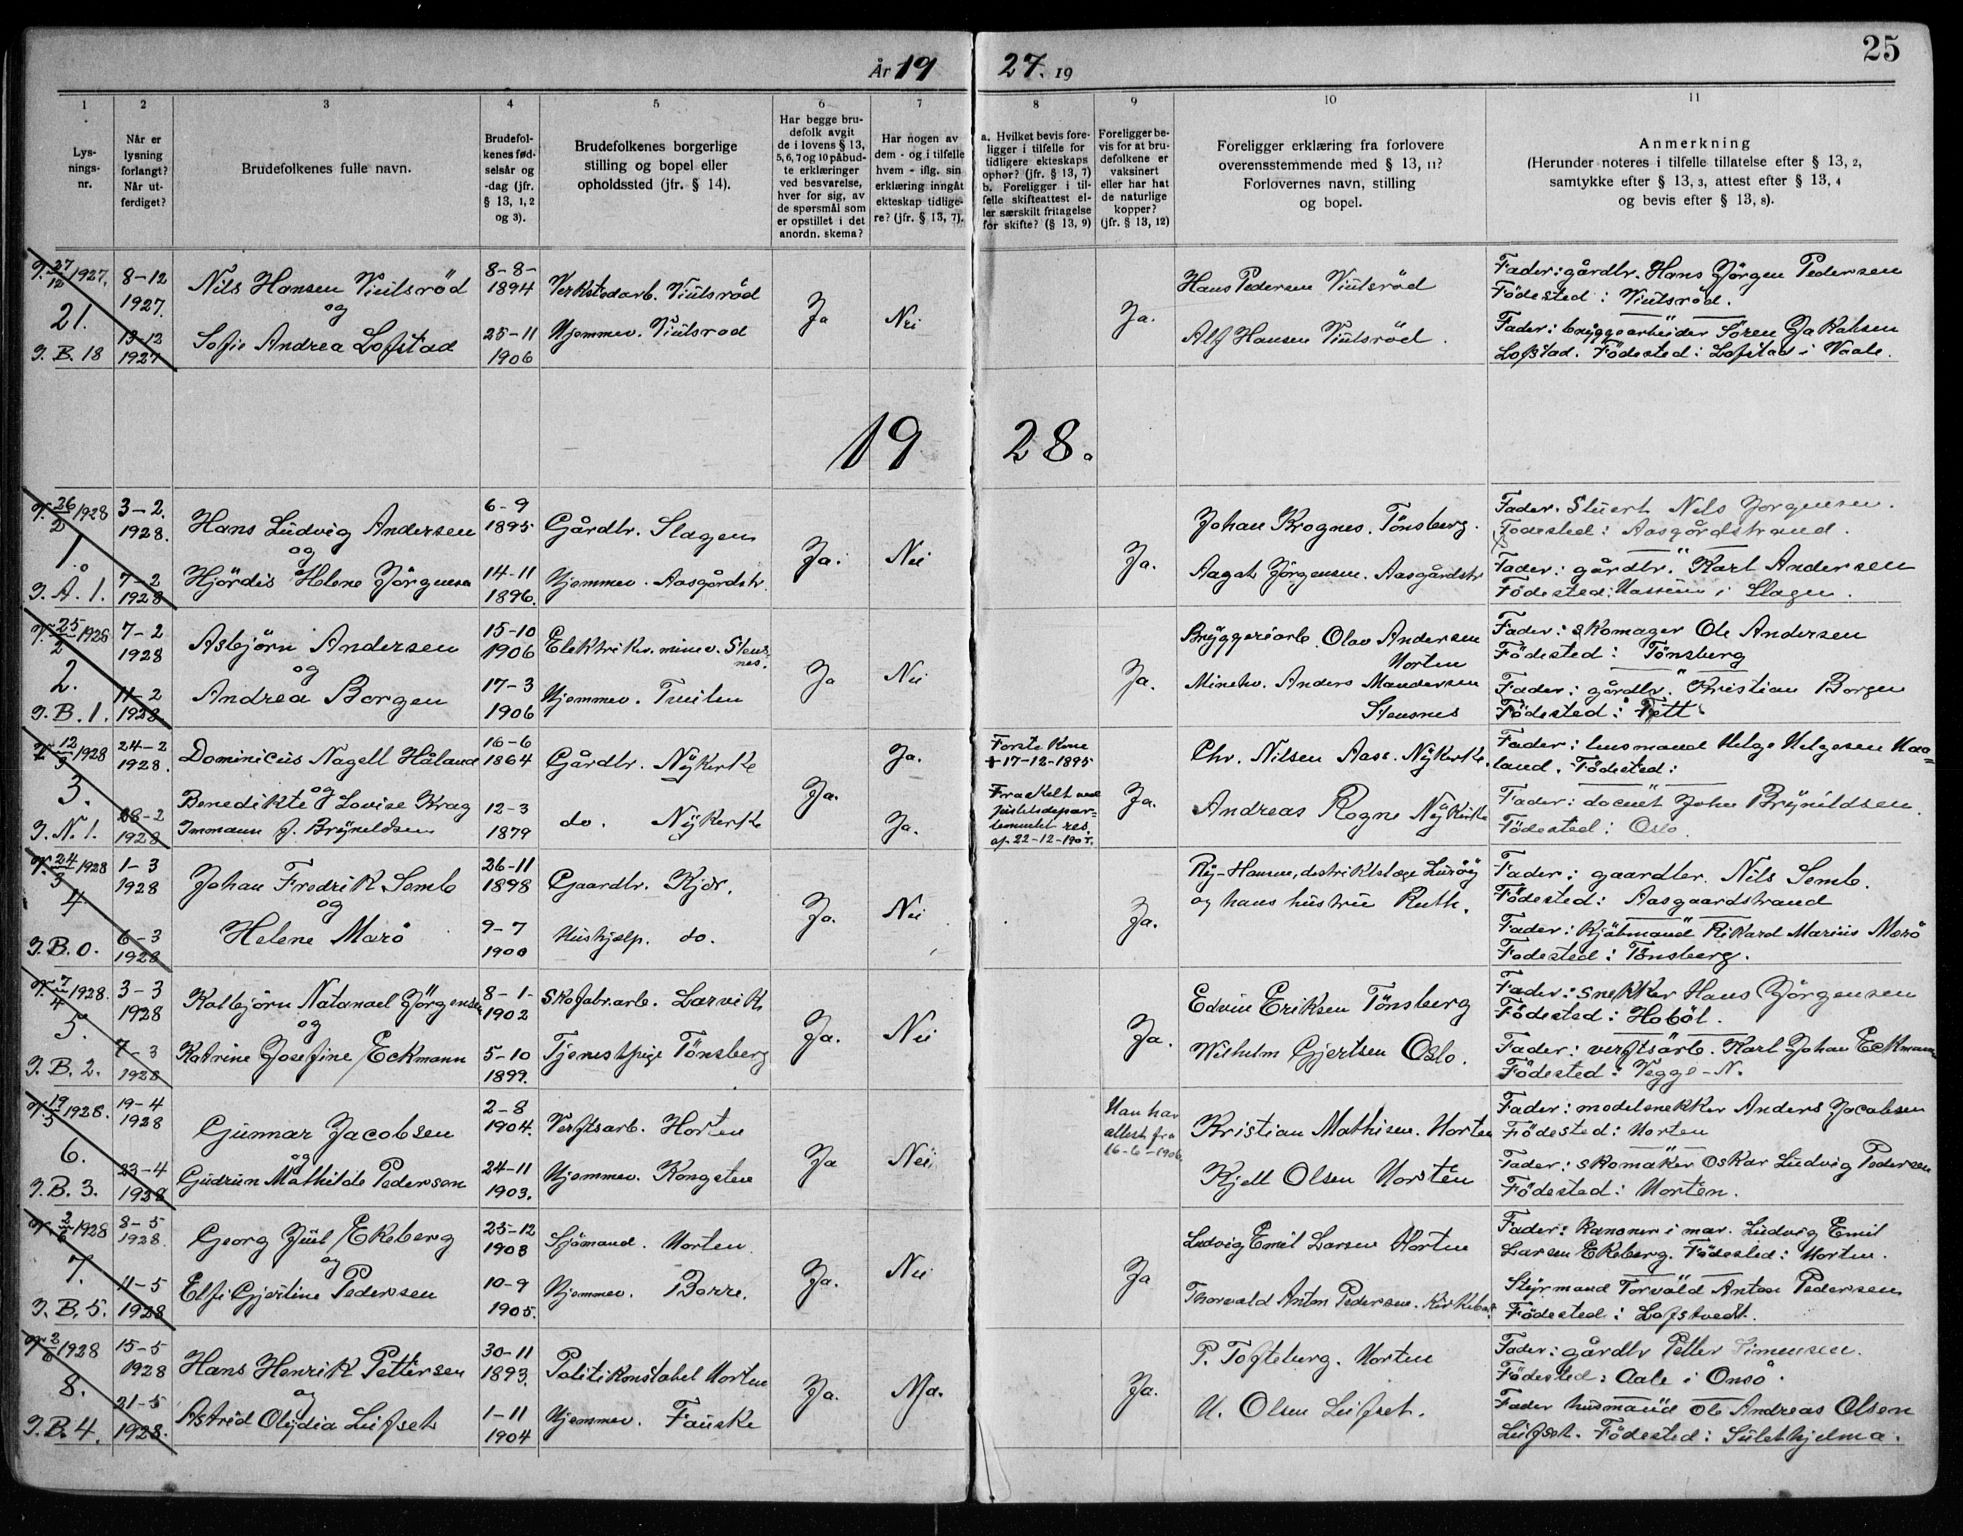 År 19 27. 19
25
1 2 3 4 5 6 7 8 9 10 11
Lys-
nings-
nr.
Når er
lysning
forlangt?
Når ut-
ferdiget?
Brudefolkenes fulle navn.
Brudefol-
kenes fød-
selsår og
-dag (jfr.
§ 13, 1, 2
og 3).
Brudefolkenes borgerlige
stilling og bopel eller
opholdssted (jfr. § 14).
Har begge bru-
defolk avgit
de i lovens § 13,
5, 6, 7 og 10 påbud-
te erklæringer
ved besvarelse,
hver for sig, av
de spørsmål som
er opstillet i det
anordn. skema?
Har nogen av
dem - og i tilfelle
hvem - iflg. sin
erklæring inngåt
ekteskap tidlige-
re? (jfr. § 13, 7).
a. Hvilket bevis fore-
ligger i tilfelle for
tidligere ekteskaps
ophør? (jfr. § 13, 7)
b. Foreligger i til-
felle skifteattest el-
ler særskilt fritagelse
for skifte? (§ 13, 9)
Foreligger be-
vis for at bru-
defolkene er
vaksinert
eller har hat
de naturlige
kopper?
(jfr. § 13, 12)
Foreligger erklæring fra forlovere
overensstemmende med § 13, 11?
Forlovernes navn, stilling
og bopel.
Anmerkning
(Herunder noteres i tilfelle tillatelse efter § 13, 2,
samtykke efter § 13, 3, attest efter § 13, 4
og bevis efter § 13, 8).
27/12 1927.
21.
J. B. 18
8-12
1927.
13-12
1927
Nils Hansen Viulsröd
og
Sofie Andrea Lofstad
8-8-
1894
25-11
1906
Verkstedarb. Viulsröd
Hjemmev. Viulsrod
Ja
Nei
Ja.
Hans Pedersen Viulsröd
Alf Hansen Viulsröd.
Fader: gårdbr. Hans Jörgen Pedersen
Födested: Viulsröd.
Fader: bryggearbeider Sören Jakobsen
Lofstad. Födested: Lofstad i Vaale.
19 28.
26/2 1928
1.
J. Å. 1.
3-2.
1928.
7-2
1928
Hans Ludvig Andersen
og
Hjördis Helene Jörgensen
6-9
1895
14-11
1896.
Gårdbr. Slagen
Hjemmev. Aasgårdstr.
Ja.
Nei
Ja.
Johan Krognes. Tönsberg.
Aagat Jörgensen. Aasgårdstr
Fader. Stuert Nils Jorgensen.
Fodested: Aasgårdstrand.
Fader: gårdbr. Karl Andersen
Födested: i Slagen.
25/2 1928
2.
J. B. 1.
7-2
1928
11-2
1928.
Asbjörn Andersen
og
Andrea Borgen
15-10
1906
17-3
1906
Elektriker. minev. Stens-
nes.
Hjemmev. Tveiten
Ja
Nei
Ja.
Bryggeriarb. Olav Andersen
Horten
Minehv. Anders Mandersen
Stensnes
Fader: skomager Ole Andersen
Födested: Tönsberg
Fader: gårdbr. Kristian Borgen
Födested: Tjett.
12/3 1928
3.
J. N. 1.
24-2
1928.
28-2
1928
Dominicus Nagell Håland
og
Benedikte Lovise Krag
Immann f. Brynildsen
16-6
1864
12-3
1879
Gårdbr. Nykirke
do. Nykirke
Ja.
Ja.
Ja.
Forste Kone
+ 17-12-1895
Fraskilt ved
justisdepar-
tementet res.
af 22-12-1905.
Ja.
Chr. Nilsen Aase. Nykirke.
Andreas Rogne Nykirke
Fader: husmand Helge Helgesen Haa-
land. Födested:
Fader: docent John Brynildsen.
Födested: Oslo.
24/3 1928
4.
J. B. 0.
1-3
1928
6-3
1928
Johan Fredrik Semb
og
Helene Marö
26-11
1898
9-7
1900
Gaardbr. Kjær.
Hushjelp. do.
Ja.
Nei
Ja.
Ry-Hansen, distriktslæge Luröy
og hans hustru Ruth.
Fader: gaardbr. Nils Semb.
Födested: Aasgaardstrand
Fader: Kjöbmand Rikard Marius Marö
Fodested: Tönsberg.
7/4 1928.
5.
J. B. 2.
3-3
1928
7-3
1928
Kolbjörn Natanael Jörgensen
og
Katrine Josefine Eckmann
8-1-
1902
5-10
1899.
Skofabr.arb. Larvik
Tjenestpige Tönsberg
Ja.
Nei
Ja.
Edvin Eriksen Tönsberg
Wilhelm Gjertsen Oslo.
Fader: snekker Hans Jörgensen
Födested: Hoböl.
Fader: verftsarb. Karl Johan Eckmann
Födested: Vegge-N.
19/5 1928.
6.
J. B. 3.
19-4
1928
23-4
1928
Gunnar Jacobsen
og
Gudrun Mathilde Pedersen
2-8
1904.
24-11
1903.
Verftsarb. Horten
Hjemmev. Kongsten
Ja
Nei.
Han har
attest fra
16-6-1906
Kristian Mathisen. Horten
Kjell Olsen Horten
Fader: modelsnekker Anders Jacobsen
Födested: Horten
Fader: skomaker Oskar Ludvig Pedersen
Födested: Horten.
2/6 1928
7.
J. B. 5.
8-5
1928.
11-5
1928
Georg Juul Ekeberg
og
Elfi Gjertine Pedersen
25-12
1908
10-9
1905.
Sjömand. Horten
Hjemmev. Borre.
Ja.
Nei
Ja
Ludvig Emil Larsen Horten
Thorvald Anton Pedersen.
Fader: Kanoner i mar. Ludvig Emil
Larsen Ekeberg. Födested: Horten.
Styrmand Torvald Anton Pedersen
Födested: Lofstvedt.
2/6 1928
8.
J. B. 4.
15-5
1928
21-5
1928.
Hans Henrik Pettersen
og
Astrid Olydia Leifset
30-11
1893.
1-11
1904
Politikonstabel Horten
Hjemmev. Fauske
Ja.
Nei.
Ja.
P. Tofteberg. Horten
U. Olsen Leifset.
Fader: gårdbr Petter Simensen.
Födested: Aale i Onsö.
Fader husmand Ole Andreas Olsen
Leifset. Födested: Sulethjelma.